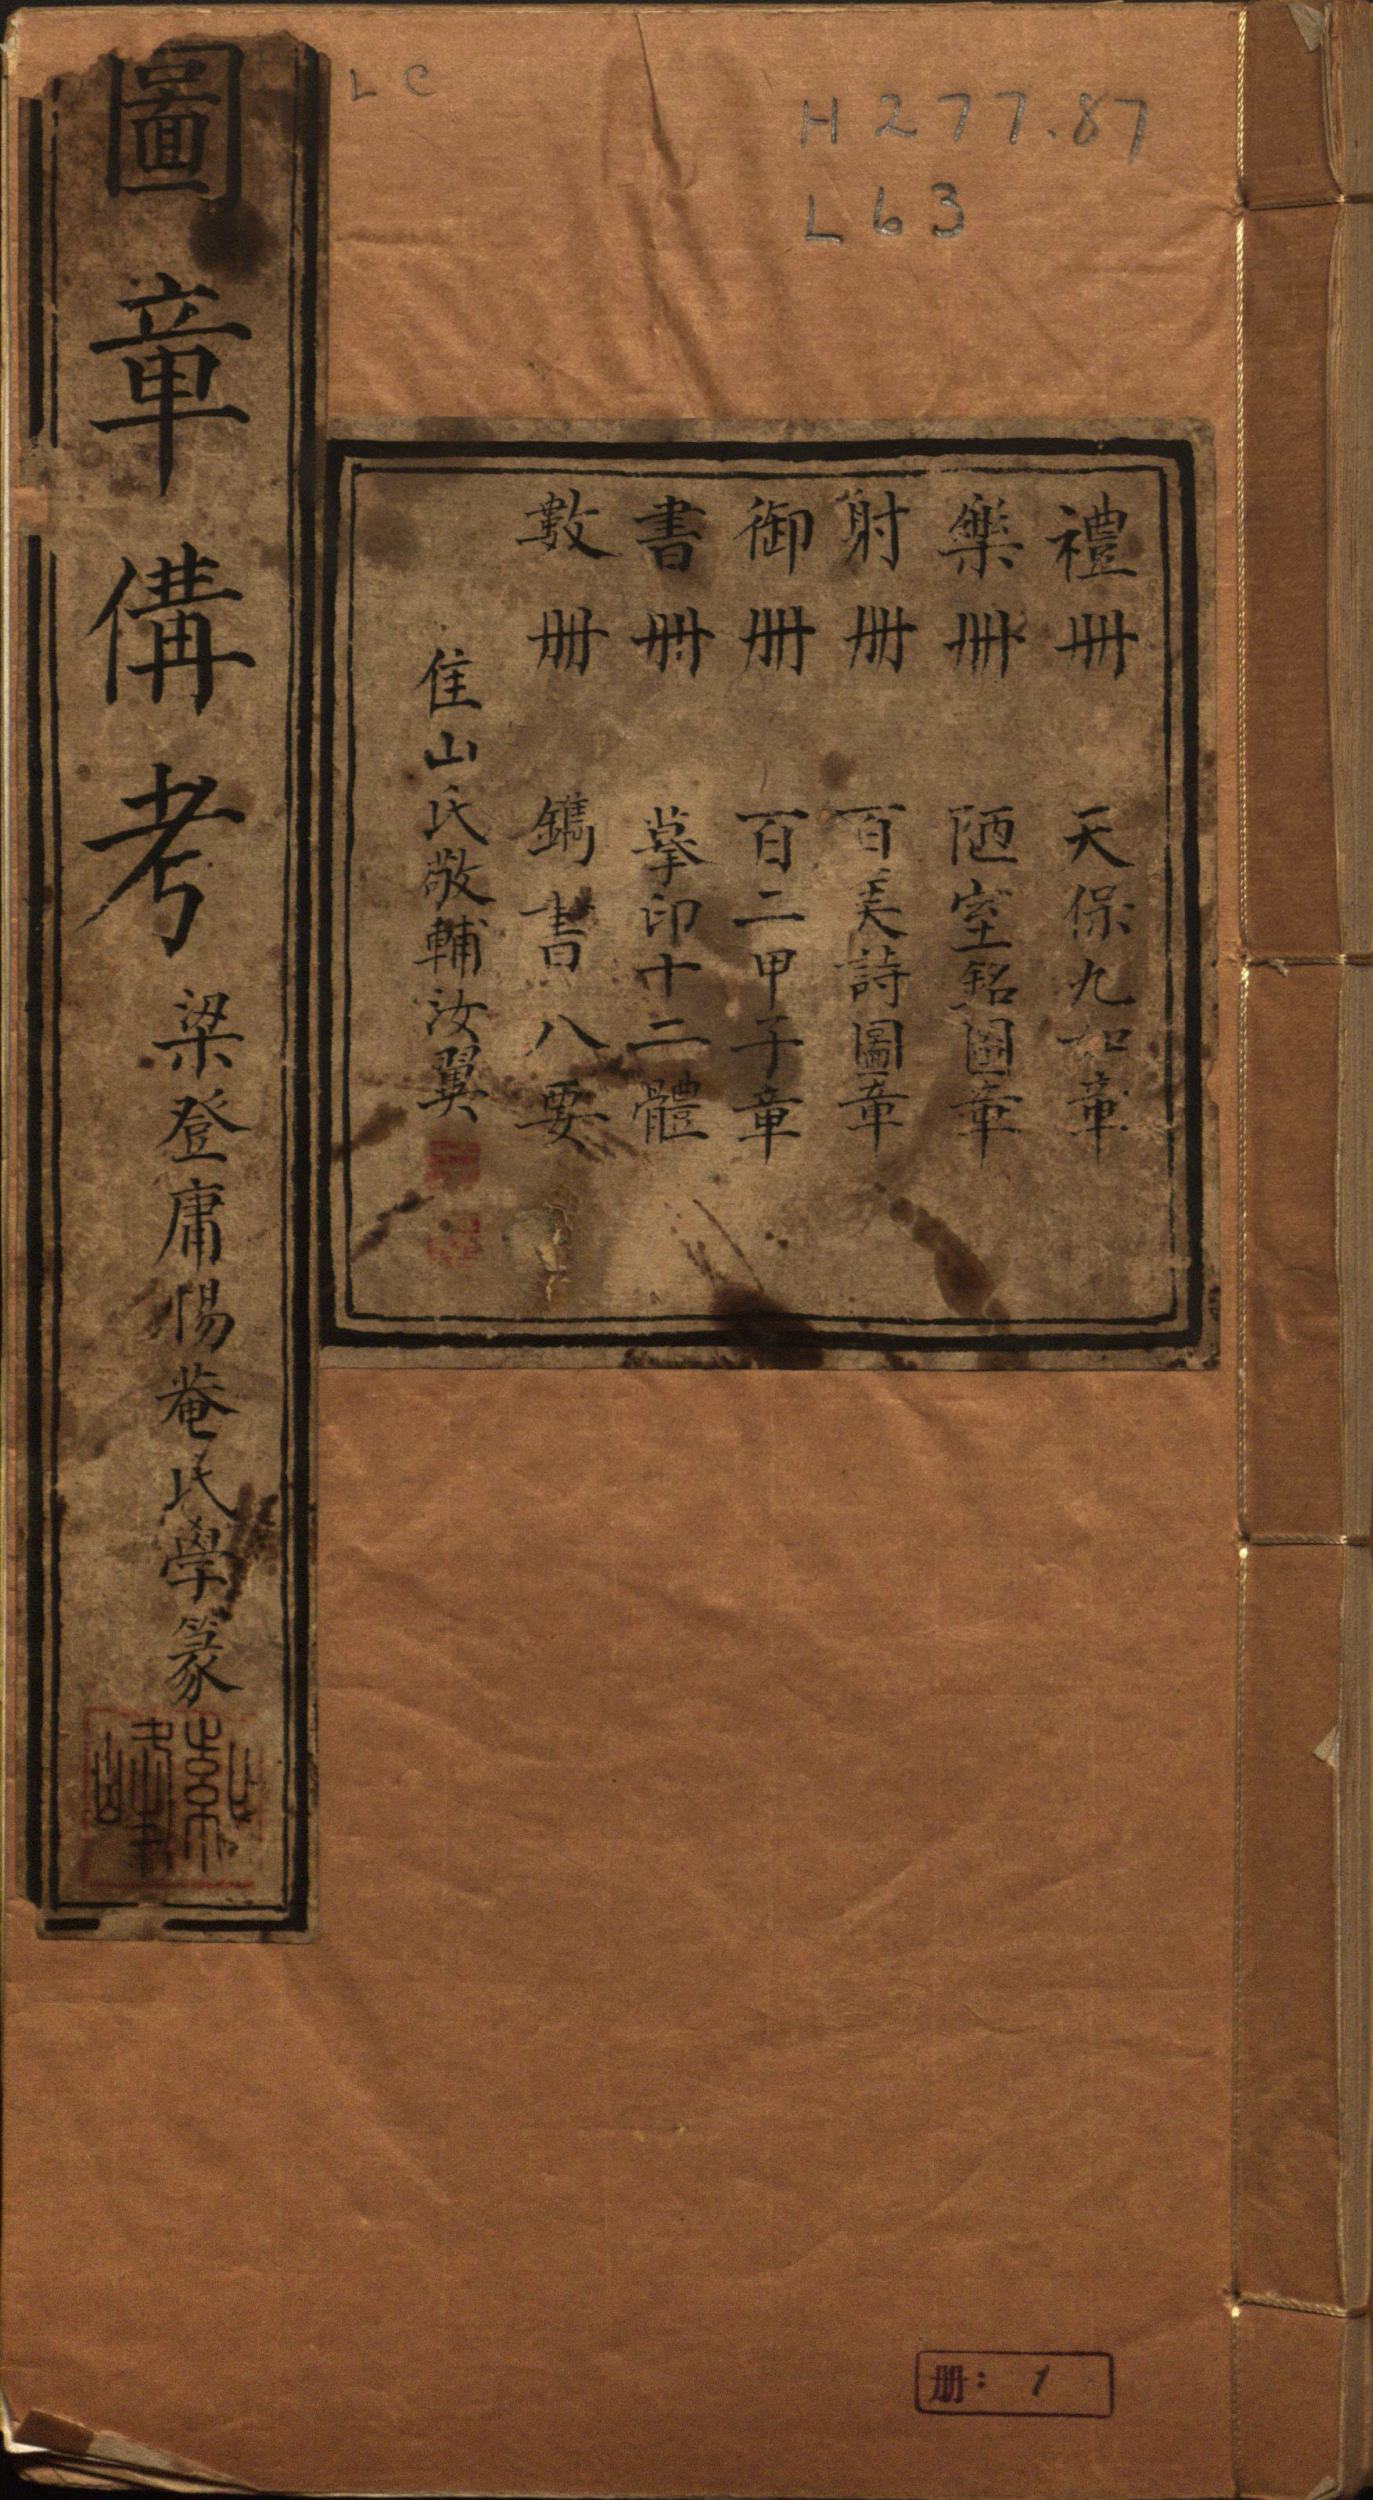 LC
H277.87
L63
禮册 天保九如章
樂册 陋室銘圖章
射册 百美詩圖章
御册 百二甲子章
書册 摹印十二體
數册 鐫書八要
隹山氏敬輔汝翼
圖章備考
梁登庸惕菴氏學篆
册: 1